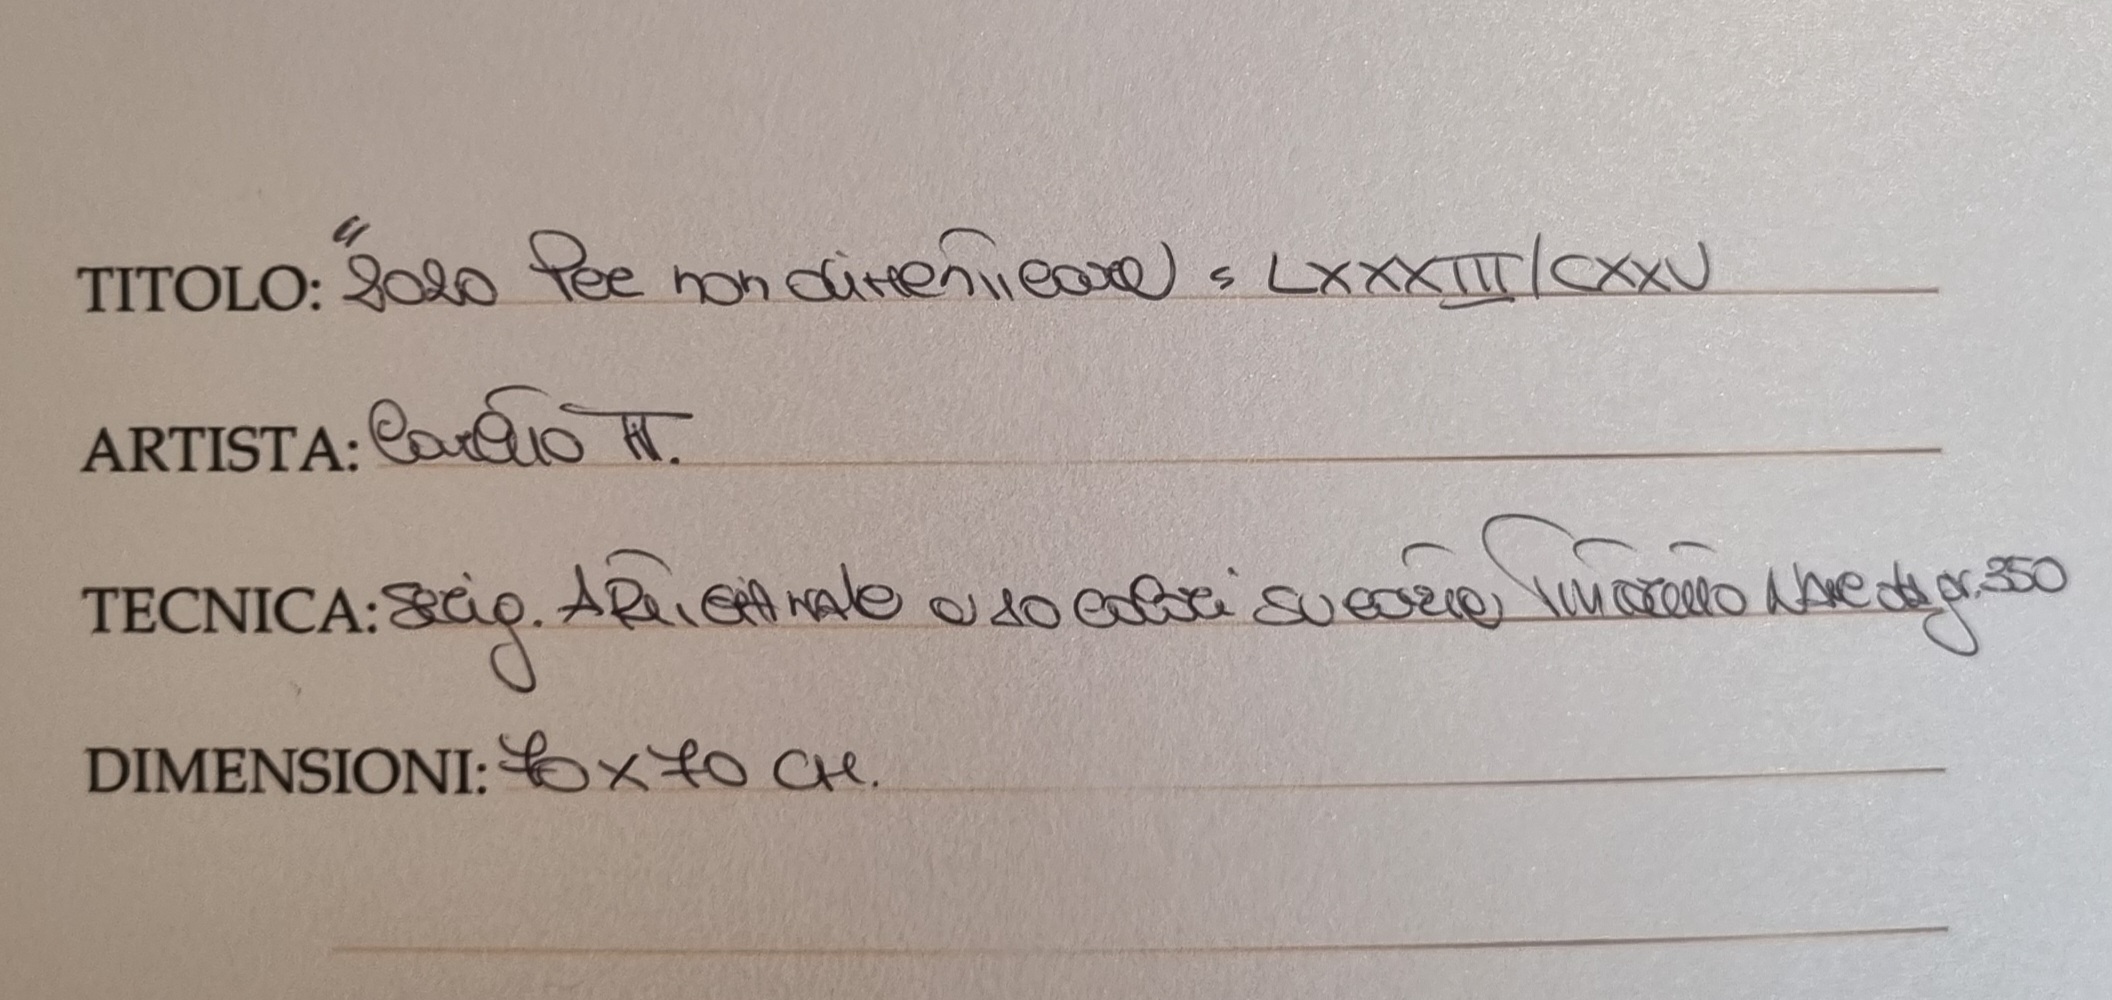 TITOLO: "2020 Per non dimenticare" LXXXIII/CXXV
ARTISTA: T.
TECNICA: Serig. Artigianale a 10 colori su carta gr. 350
DIMENSIONI: 70x70 cm.